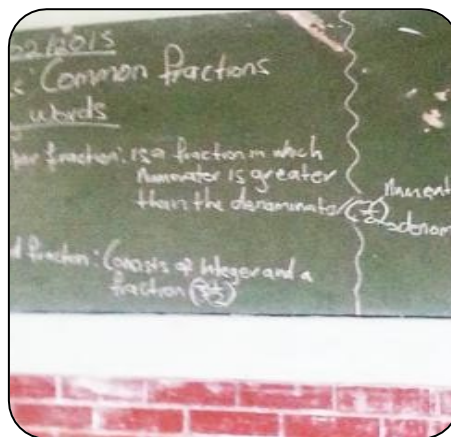 02/2015
Common fractions
words
fraction: is a fraction in which
Numerator is greater
than the denominator
fraction: Consists of Integer and a
fraction (3½)